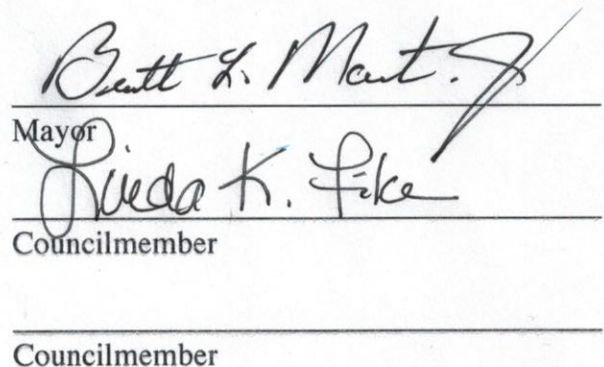 L. Jr
Mayor
Linda K. Fike
Councilmember
Councilmember